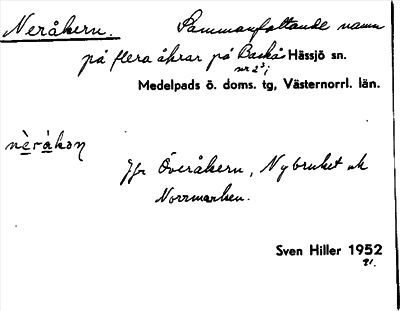 Neråkern. Sammanfattande namn
på flera åkrar på Backå Hässjö sn.
nr 2³;
Medelpads ö. doms. tg, Västernorrl. län.
nèråkọn
Jfr Överåkern, Nybruket och
Norrmarken.
Sven Hiller 1952